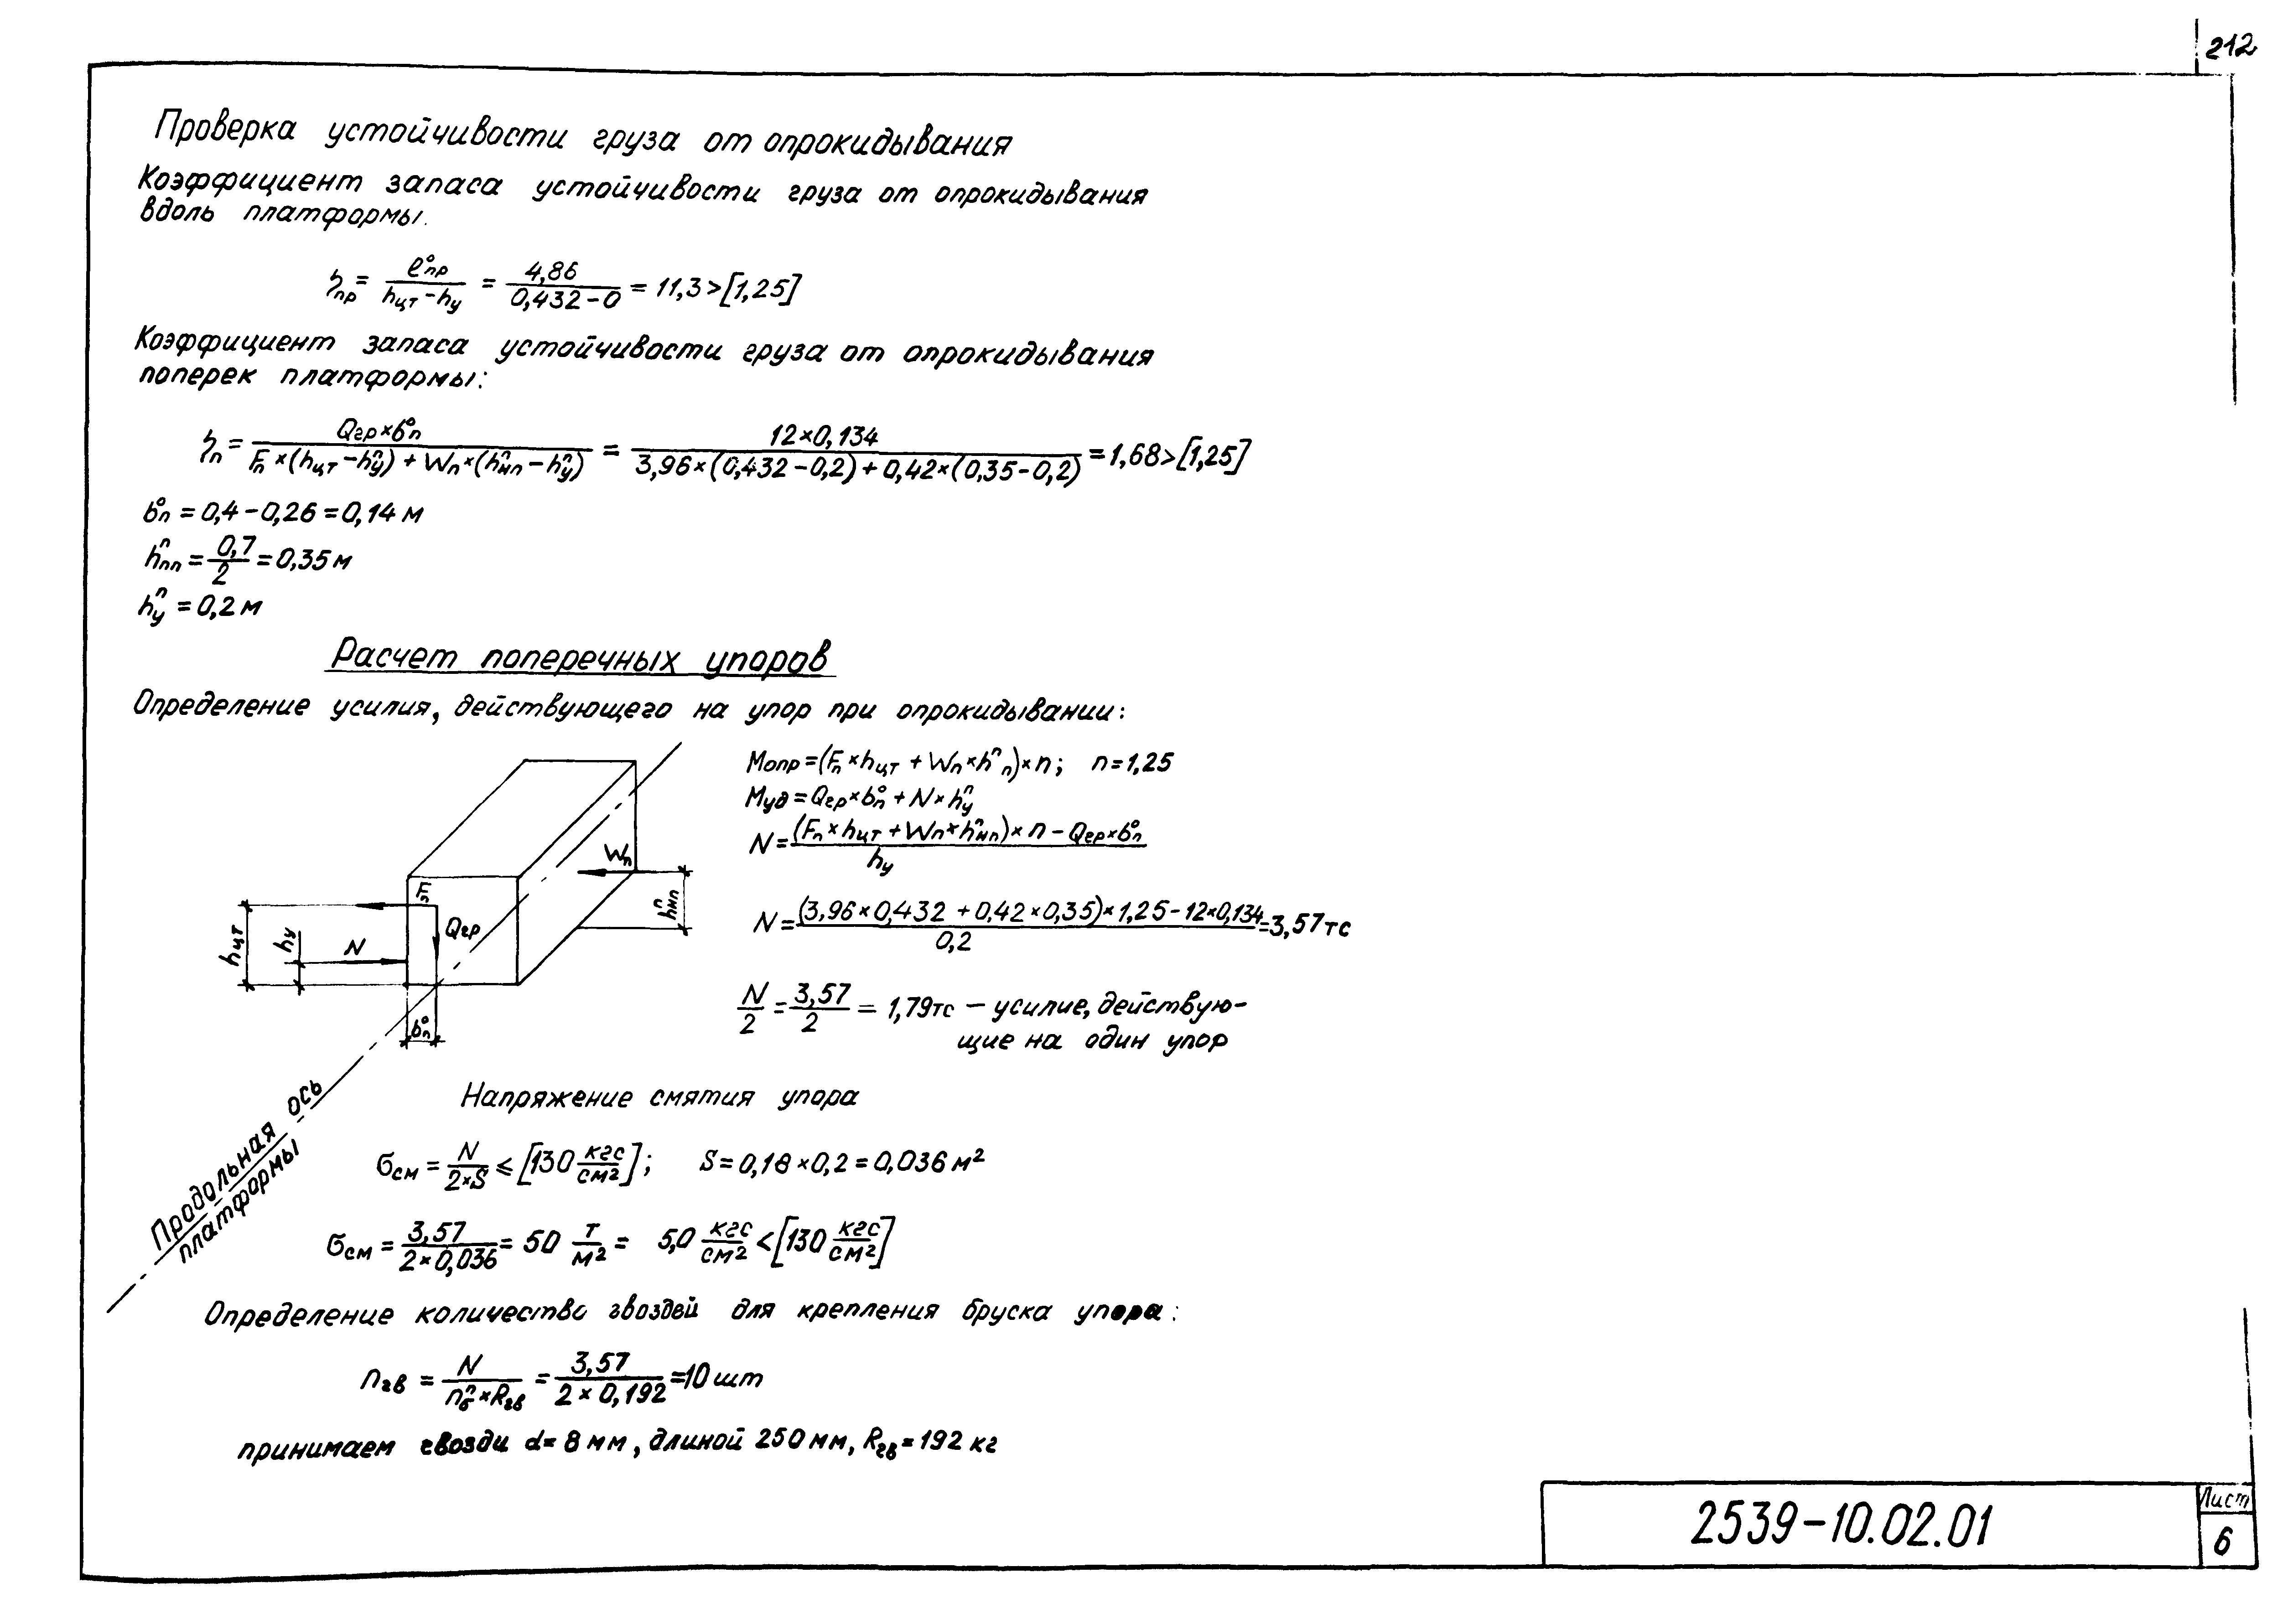 212
Проверка устойчивости груза от опрокидывания
Коэффициент запаса устойчивости груза от опрокидывания
вдоль платформы.
ηпр = l°пр / (hцт - hу) = 4,86 / (0,432 - 0) = 11,3 > [1,25]
Коэффициент запаса устойчивости груза от опрокидывания
поперек платформы:
ηп = Qгр × b°п / (Fп × (hцт - hⁿу) + Wп × (hⁿнп - hⁿу)) = 12 × 0,134 / (3,96 × (0,432 - 0,2) + 0,42 × (0,35 - 0,2)) = 1,68 > [1,25]
b°п = 0,4 - 0,26 = 0,14 м
hⁿпп = 0,7 / 2 = 0,35 м
hⁿу = 0,2 м
Расчет поперечных упоров
Определение усилия, действующего на упор при опрокидывании:
Mопр = (Fп × hцт + Wп × hⁿп) × n; n = 1,25
Mуд = Qгр × b°п + N × hⁿу
N = ((Fп × hцт + Wп × hⁿнп) × n - Qгр × b°п) / hу
N = ((3,96 × 0,432 + 0,42 × 0,35) × 1,25 - 12 × 0,134) / 0,2 = 3,57 тс
N / 2 = 3,57 / 2 = 1,79тс - усилие, действую-
щие на один упор
Wп
hⁿнп
Fп
Qгр
N
hцт
hу
b°п
Продольная ось
платформы
Напряжение смятия упора
σсм = N / (2 × S) ≤ [130 кгс/см²]; S = 0,18 × 0,2 = 0,036 м²
σсм = 3,57 / (2 × 0,036) = 50 т/м² = 5,0 кгс/см² < [130 кгс/см²]
Определение количество гвоздей для крепления бруска упора:
nгв = N / (nⁿб × Rгв) = 3,57 / (2 × 0,192) = 10 шт
принимаем гвозди d = 8 мм, длиной 250 мм, Rгв = 192 кг
2539-10.02.01
Лист
6